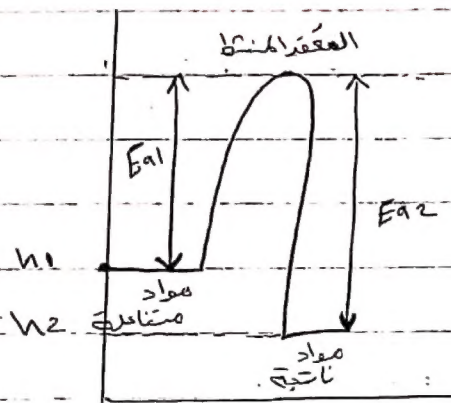 المعقد المنشط
Ea1
Ea2
h1
مواد
متفاعلة
h2
مواد
ناتجة